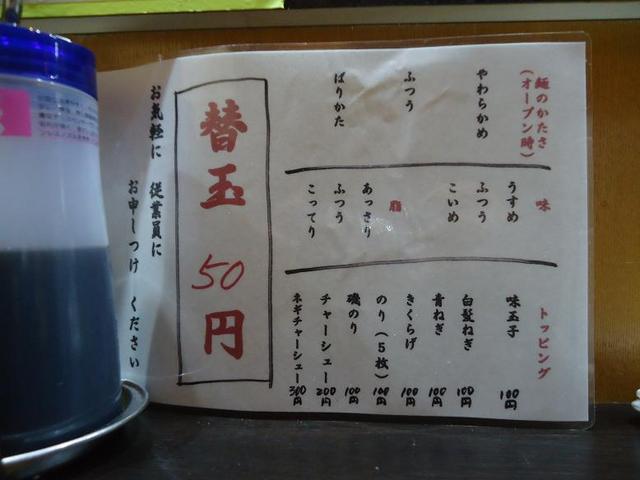 麺のかたさ
(オープン時)
やわらかめ
ふつう
ばりかた
味
うすめ
ふつう
こいめ
脂
あっさり
ふつう
こってり
トッピング
味玉子 100円
白髪ねぎ 100円
青ねぎ 100円
きくらげ 100円
のり(5枚) 100円
磯のり 100円
チャーシュー 200円
ネギチャーシュー 300円
替玉 50円
お気軽に 従業員に
お申しつけ ください